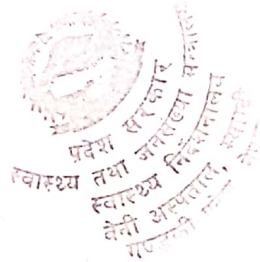 प्रदेश सरकार
स्वास्थ्य तथा जनसंख्या
स्वास्थ्य निर्देशनालय
बेनी अस्पताल, म्याग्दी
गण्डकी